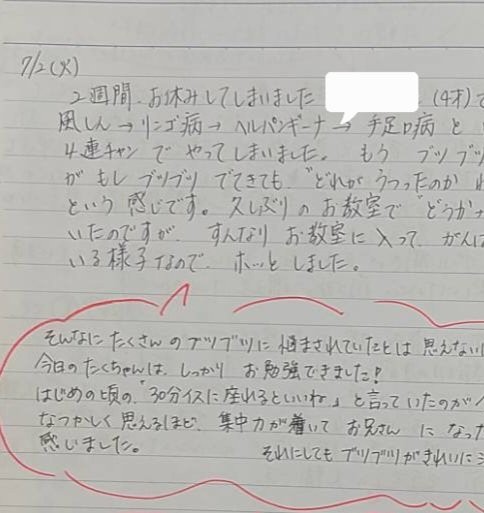 7/2(火)
2週間、お休みしてしまいました (4才)で
風しん→リンゴ病→ヘルパンギーナ→手足口病と
4連チャンでやってしまいました。もうブツブツ
がもしブツブツでてきても、"どれがうつったのか
という感じです。久しぶりのお教室で"どうか
いたのですが、すんなりお教室に入って、がんば
いる様子なので、ホッとしました。
そんなにたくさんのブツブツに悩まされていたとは思えない
今日のたくちゃんは、しっかりお勉強できました!
はじめの頃の、「30分イスに座れるといいね」と言っていたのが
なつかしく思えるほど、集中力が着いてお兄さんになった
感じました。 それにしてもブツブツがきれいに